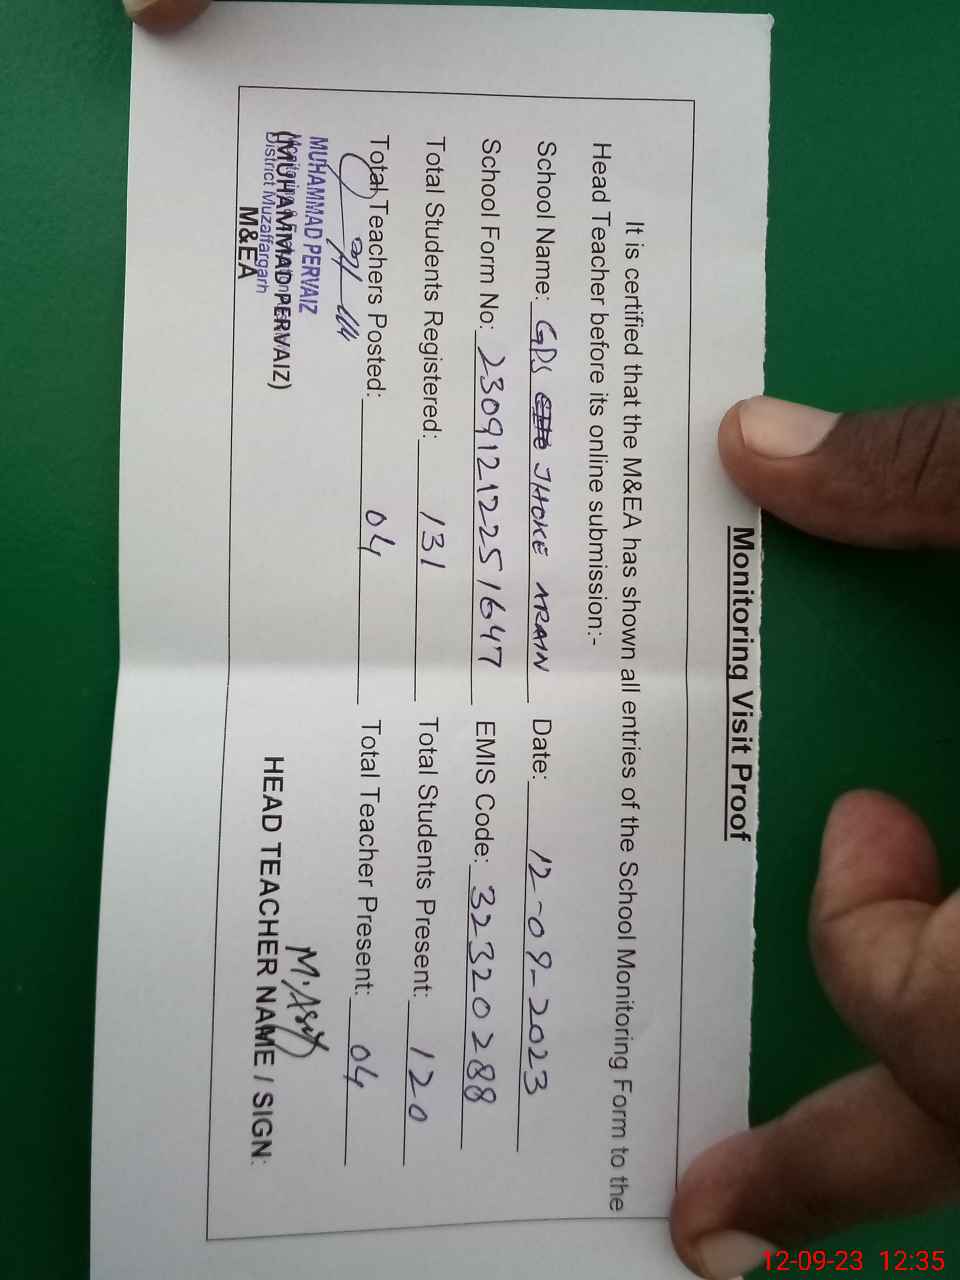 Monitoring Visit Proof
It is certified that the M&EA has shown all entries of the School Monitoring Form to the
Head Teacher before its online submission:-
School Name: GPS JHOKE ARAIN Date: 12-09-2023
School Form No: 230912122251647 EMIS Code: 32320288
Total Students Registered: 131 Total Students Present: 120
Total Teachers Posted: 04 Total Teacher Present: 04
MUHAMMAD PERVAIZ
(MUHAMMAD PERVAIZ)
District Muzaffargarh
M&EA
HEAD TEACHER NAME / SIGN:
12-09-23 12:35